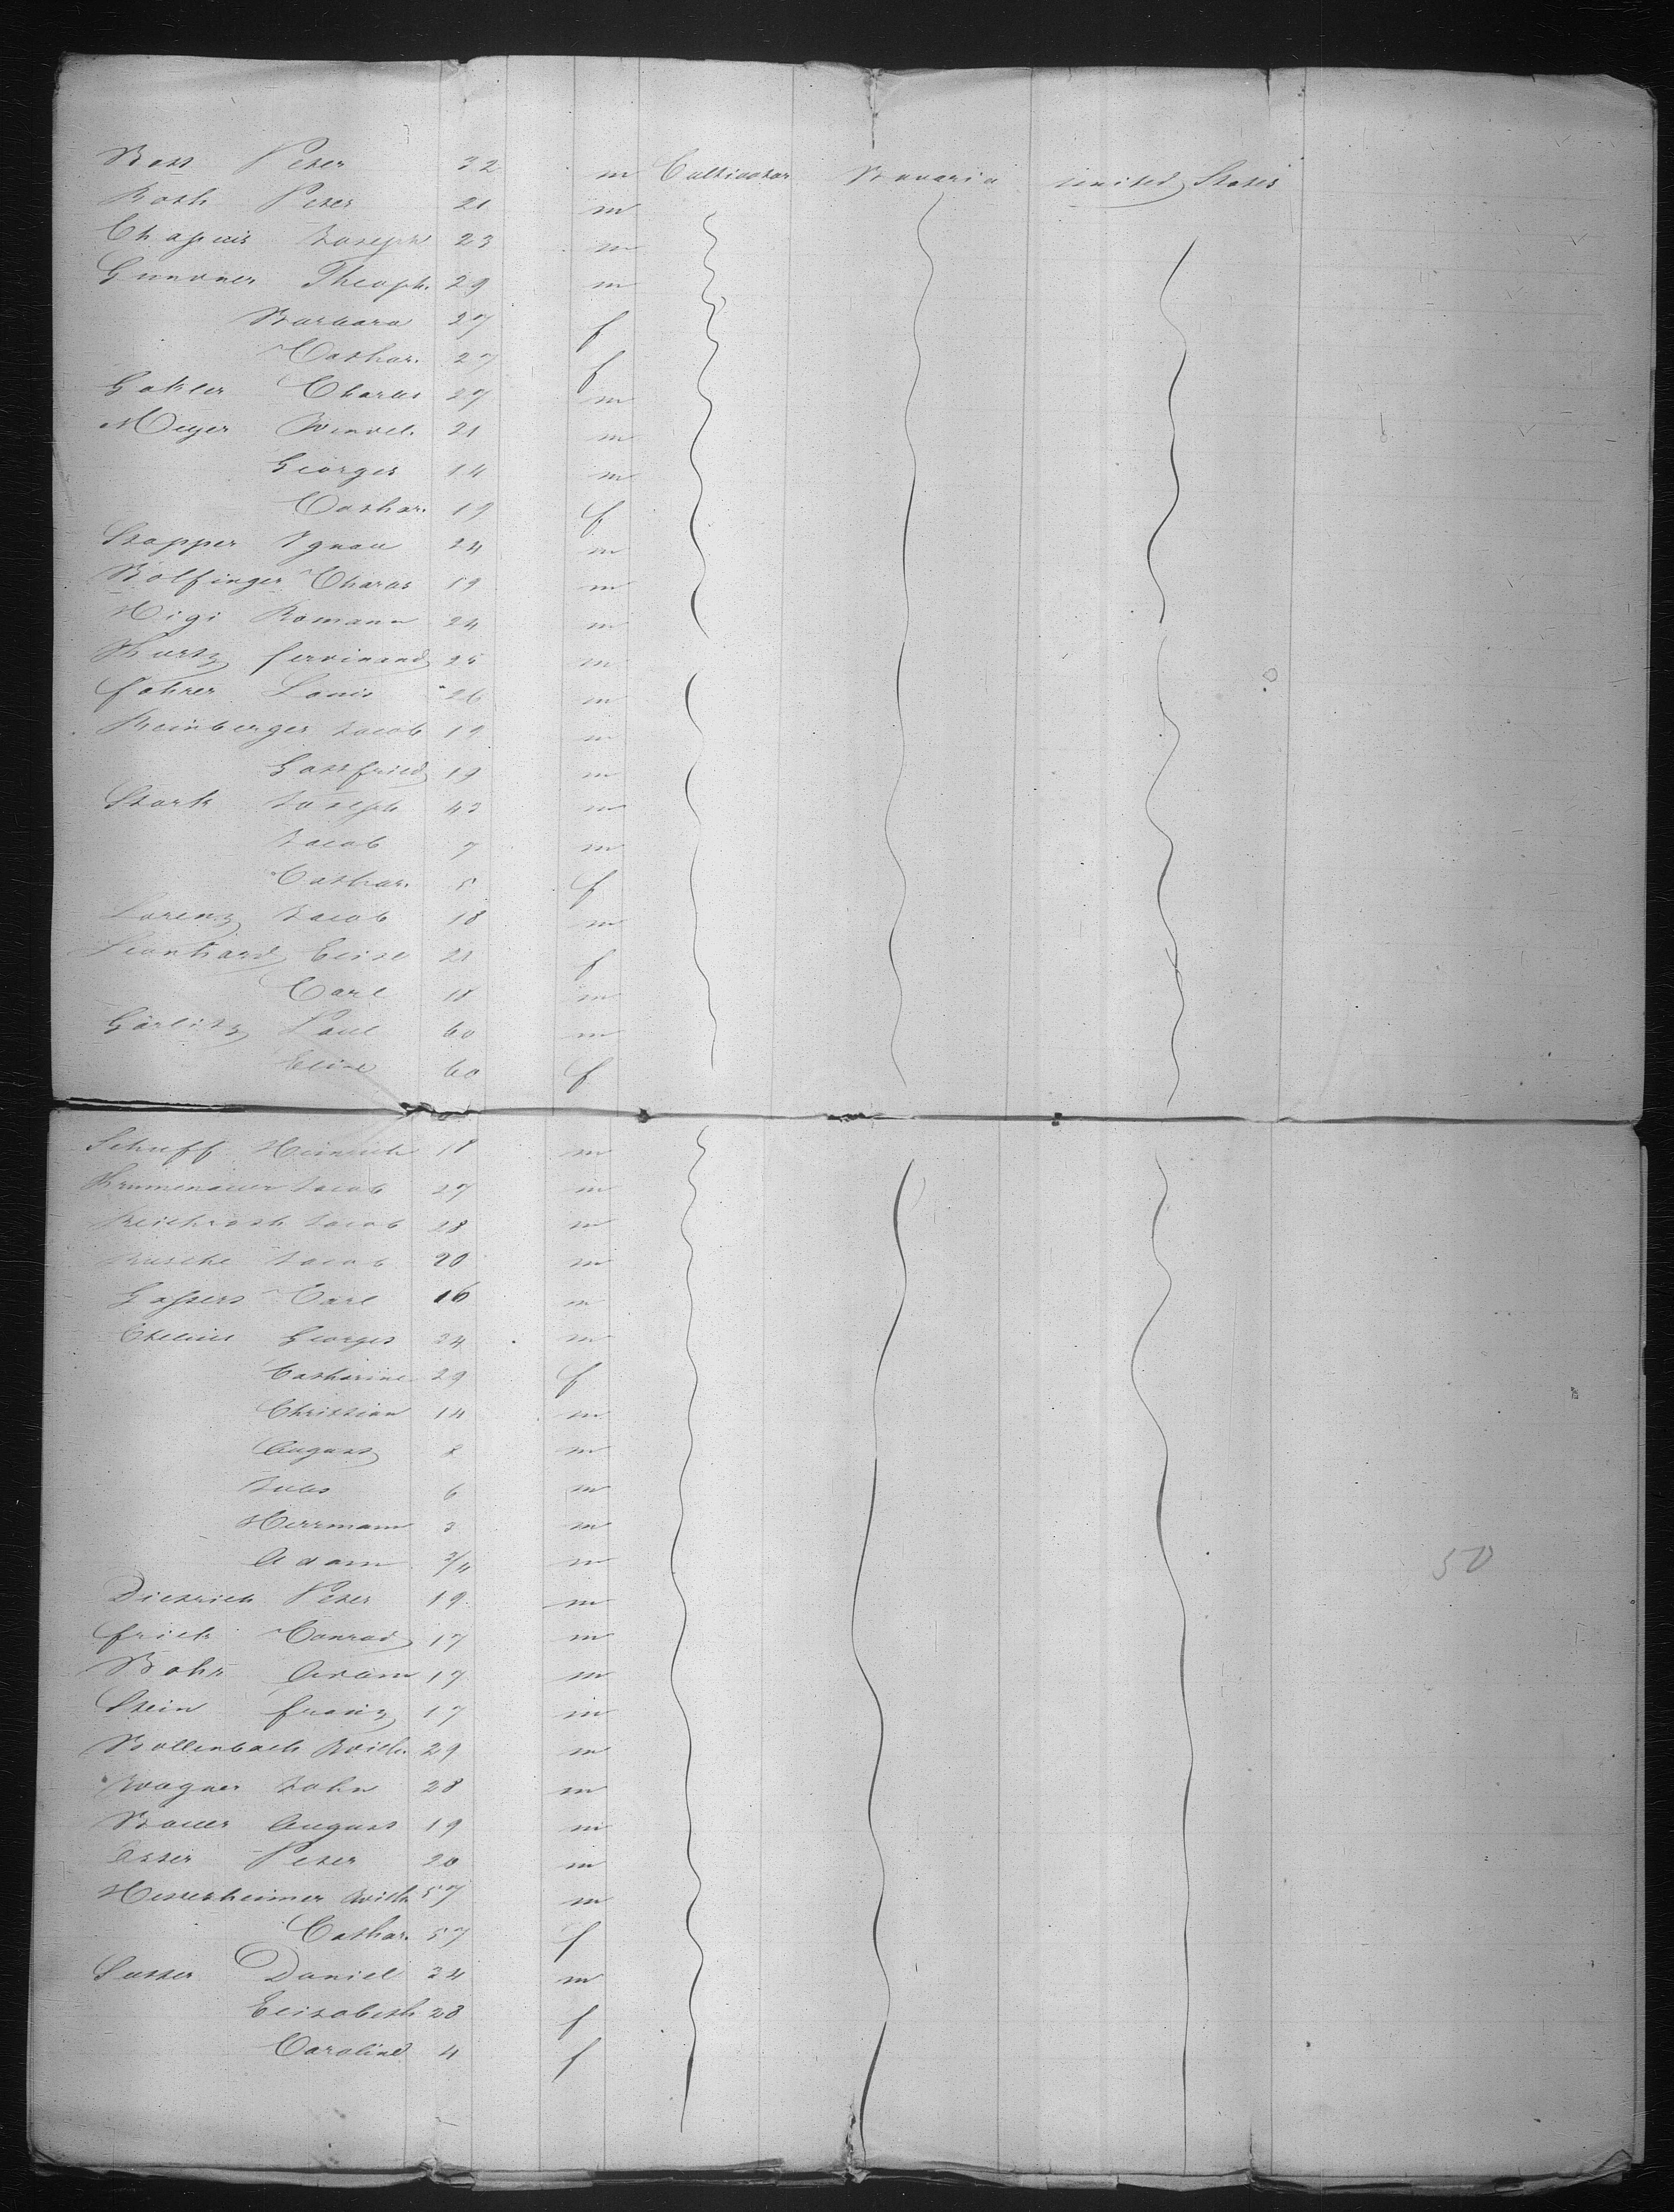 Bott Peter 32 m Cultivator Bavaria united States
Roth Peter 21 m
Chapuis Joseph 23 m
Gundner Theoph. 29 m
Barbara 27 f
Cathar. 27 f
Gohler Charles 27 m
Meyer Wendel. 21 m
Georges 14 m
Cathar. 19 f
Stapper Ignau 24 m
Bolfinger Charles 19 m
Higi Romann 24 m
Kurtz ferdinand 25 m
fohrer Louis 26 m
Reinberger Jacob 19 m
Gottfried 19 m
Stark Joseph 43 m
Jacob 7 m
Cathar. 5 f
Lorenz Jacob 18 m
Leonhard Elise 21 f
Carl 18 m
Görlitz Paul 60 m
Elise 60 f
Schuff Heinrich 18 m
Krumenauer Jacob 27 m
Reichroth Jacob 28 m
Jacob 20 m
Gossers Carl 16 m
Georges 34 m
Catharine 29 f
Christian 14 m
August 8 m
Jules 6 m
Herrmann 3 m
Adam 3/4 m
50
Dietrich Peter 19 m
frick Conrad 17 m
Bohr Adam 17 m
Stein franz 17 m
Bollenbach Wilh. 29 m
Wagner John 28 m
Bauer August 19 m
Peter 20 m
Hetterheimer Wilh. 57 m
Cathar. 57 f
Sutter Daniel 34 m
Elisabeth 28 f
Caroline 4 f